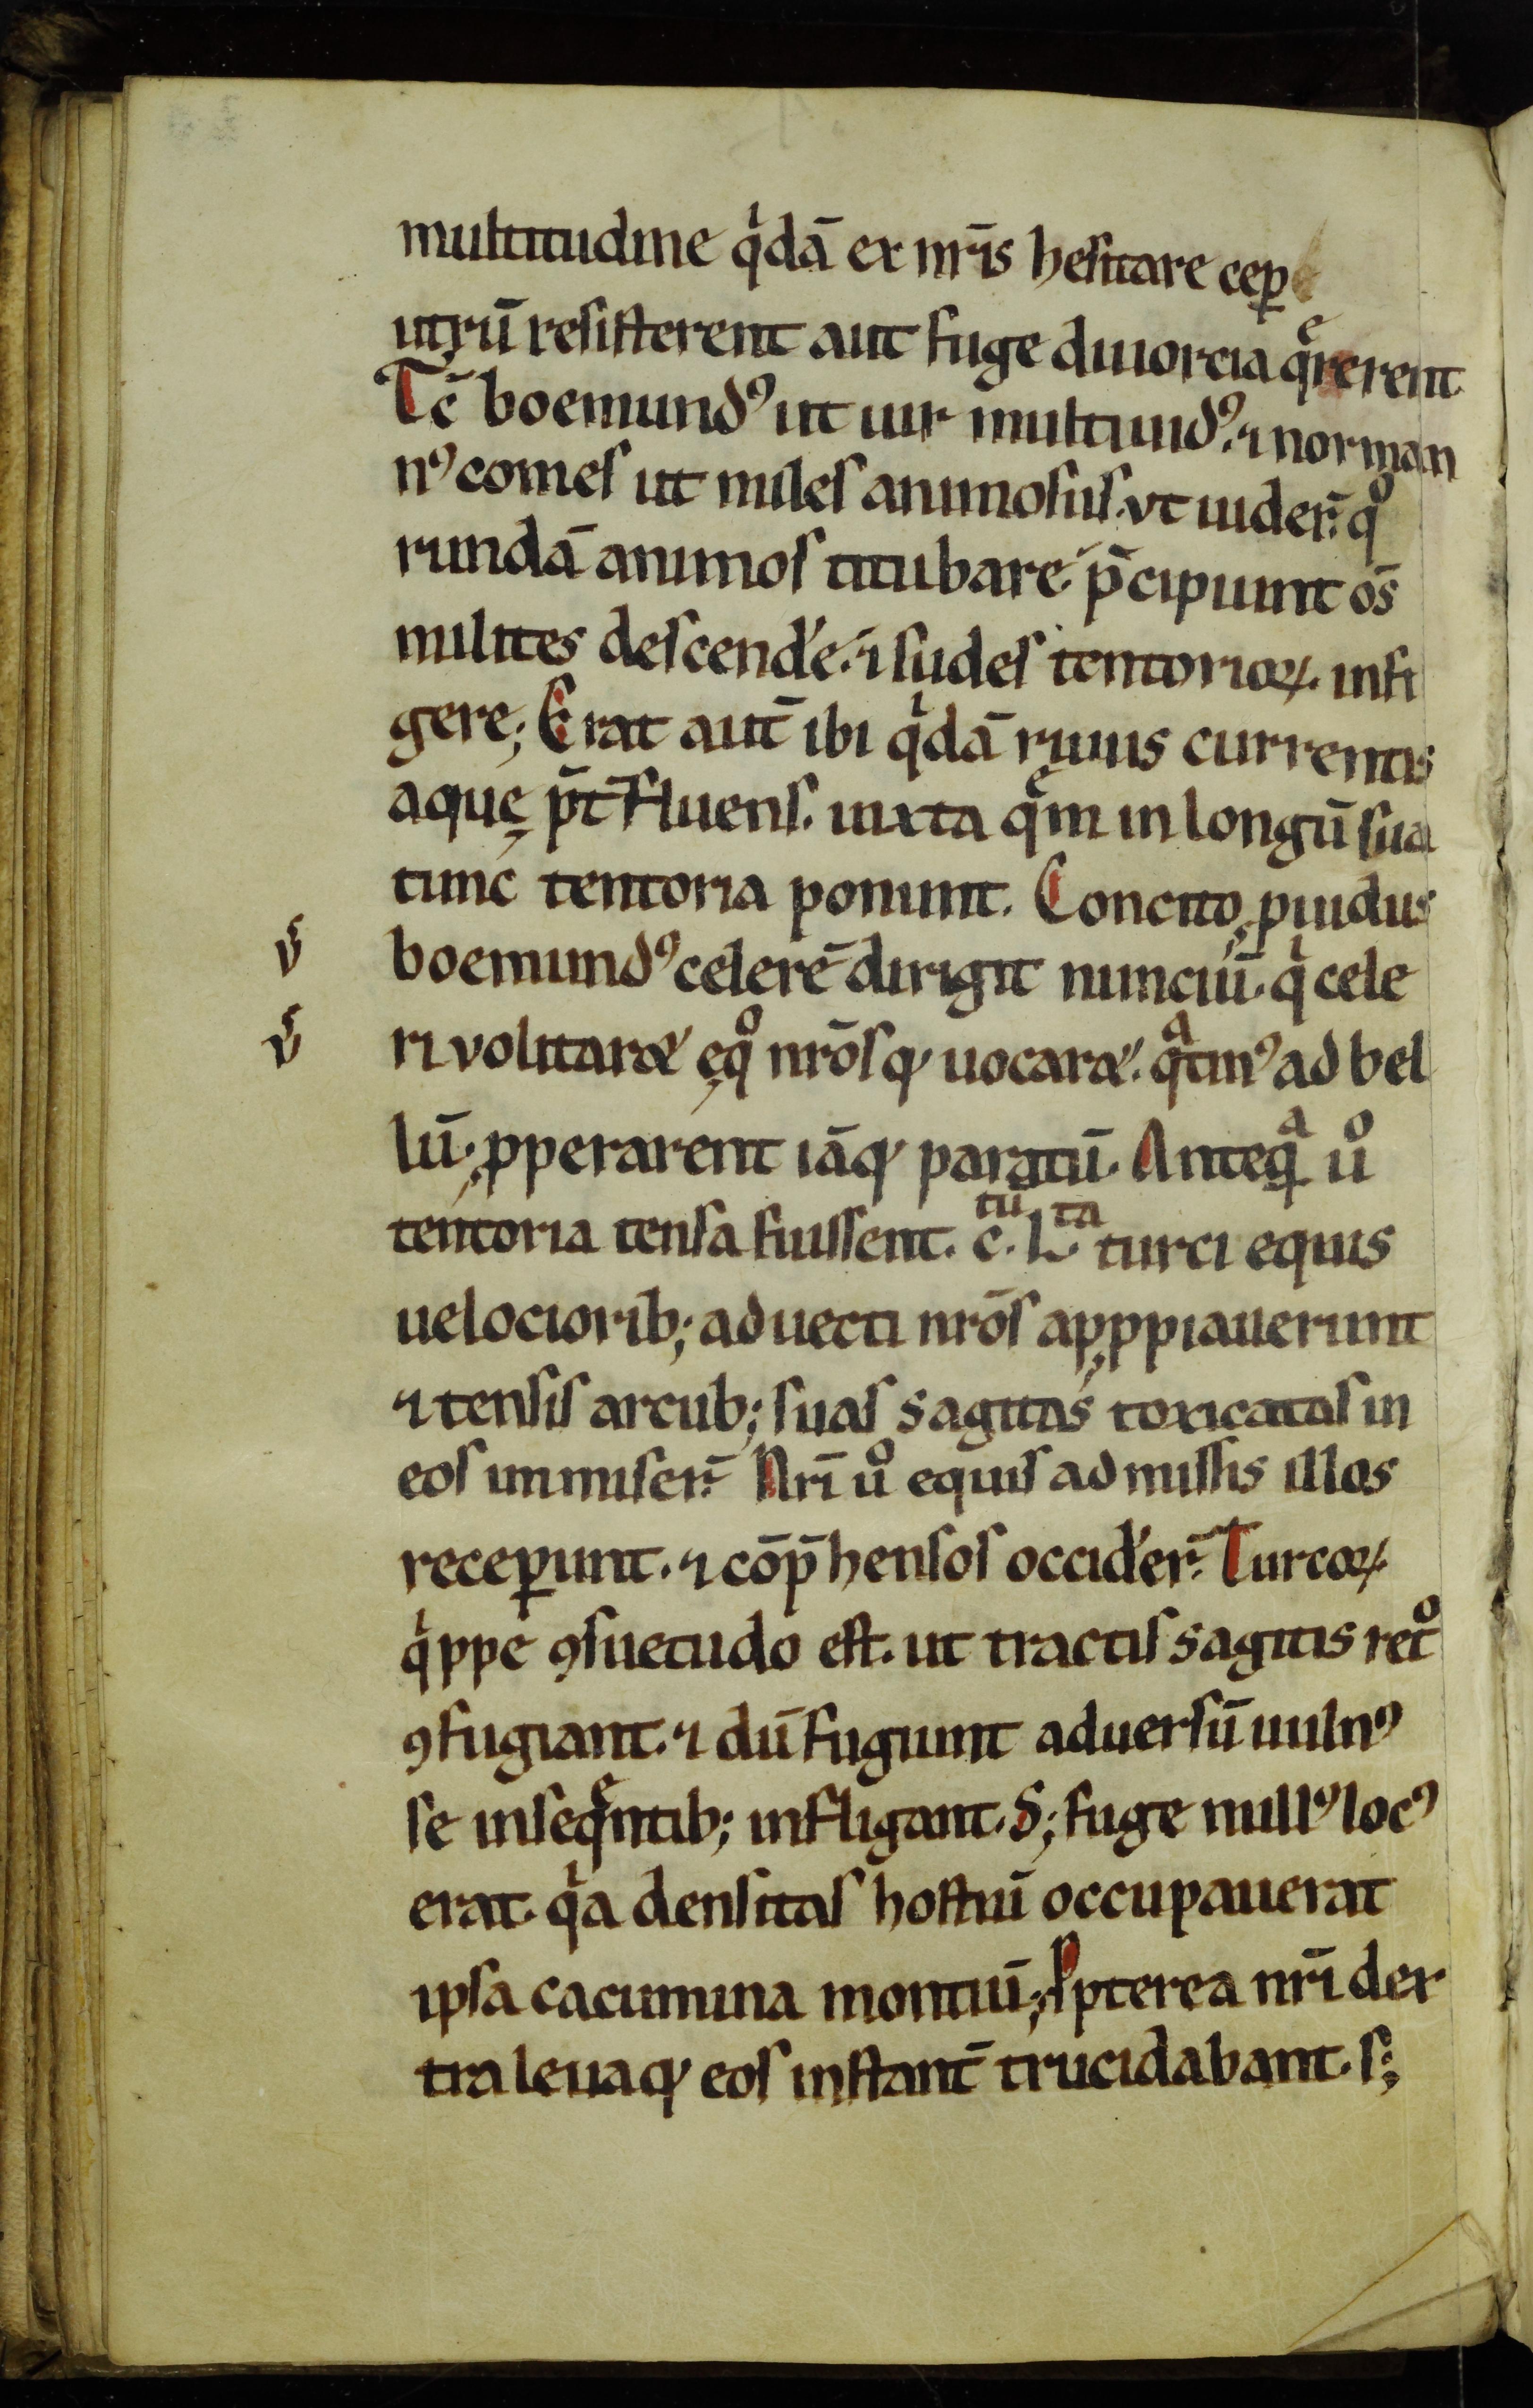 multitudine qͥdā ex nr̄is hesitare ceꝑ
utrū resisterent aut fuge diuorcia qͤrerent
Tc̄ boemundꝰ ut uir multiuidꝰ. ⁊ norman
nꝰ comes ut miles animosus. vt uider̄. qͦ
rundā animos titubare. p̄cipiunt om̄s
milites descend'e. ⁊ sudes tentorioꝝ. infi
gere; Erat aut̄ ibi qͥdā riuus currentis
aquę p̄t̄fluens. iuxta qͤm in longū sua
tunc tentoria ponunt. Concito ꝓuidus
v̄ boemundꝰ celerē dirigit nunciū. qͥ cele
v̄ ri volitaret eqͦ nr̄osqꝫ uocaret. qᷓtinꝰ ad bel
lū ꝓperarent iāqꝫ paratū. Anteqᷓ uͦ
tentoria tensa fuissent. c. tū L. ta turci equis
uelociorib; aduecti nr̄os apꝓpiauerunt
⁊ tensis arcub; suas sagittas toxicatas in
eos immiser̄. Nr̄i uͦ equis admissis illos
receꝑunt. ⁊ cōp̄hensos occid'er̄. Turcoꝝ.
qͥppe ꝯsuetudo est. ut tractis sagittis retͦ
ꝯfugiant. ⁊ dū fugiunt aduersū uulnꝰ
se inseqͤntib; infligant. S; fuge nullꝰ locꝰ
erat. qͥa densitas hostiū occupauerat
ipsa cacumina montiū; Ꝓpterea nr̄i dex
tra leuaqꝫ eos instant̄ trucidabant. s;